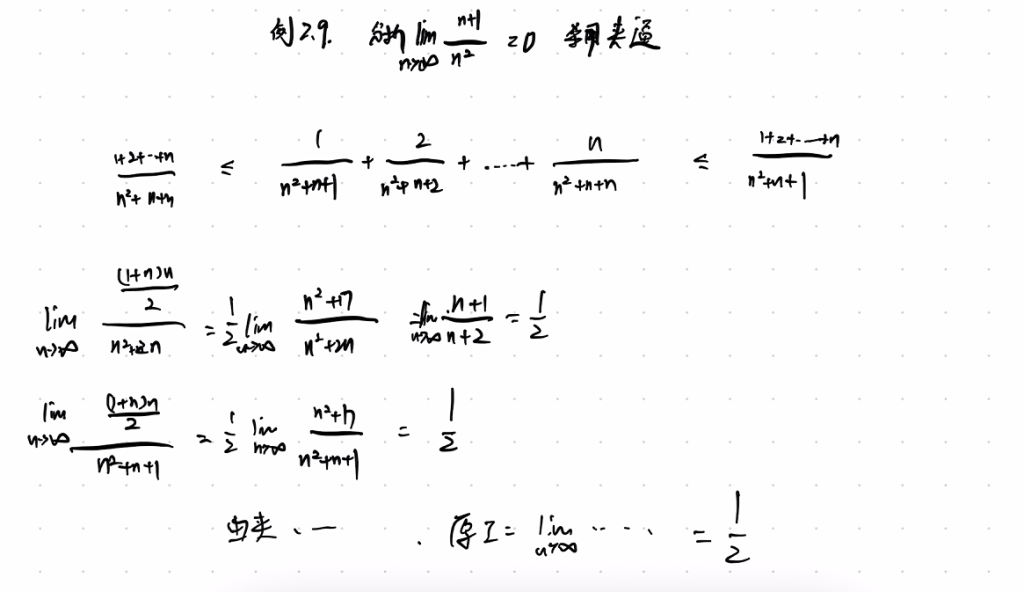 例2.9. 分析 lim n→∞ (n+1)/n² =0 夹逼
(1+2+…+n)/(n²+n+n) ≤ 1/(n²+n+1) + 2/(n²+n+2) + ……+ n/(n²+n+n) ≤ (1+2+…+n)/(n²+n+1)
lim n→∞ ((1+n)n/2)/(n²+2n) = 1/2 lim n→∞ (n²+n)/(n²+2n) = lim n→∞ (n+1)/(n+2) = 1/2
lim n→∞ ((1+n)n/2)/(n²+n+1) = 1/2 lim n→∞ (n²+n)/(n²+n+1) = 1/2
由夹、一 . 原工= lim n→∞ ‥‥ = 1/2